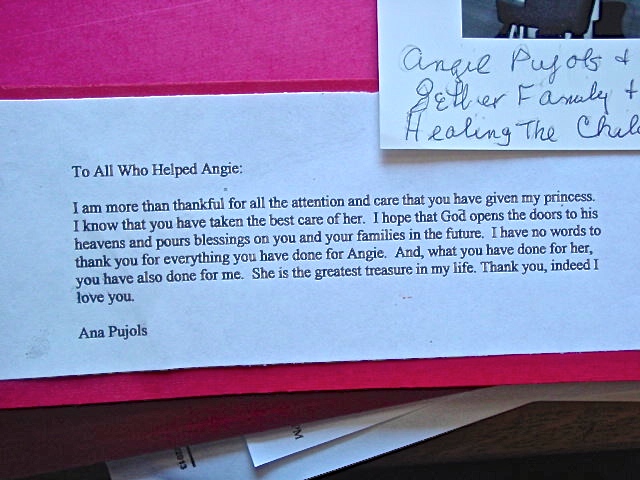 Angie Pujols +
Family +
Healing The
To All Who Helped Angie:
I am more than thankful for all the attention and care that you have given my princess.
I know that you have taken the best care of her. I hope that God opens the doors to his
heavens and pours blessings on you and your families in the future. I have no words to
thank you for everything you have done for Angie. And, what you have done for her,
you have also done for me. She is the greatest treasure in my life. Thank you, indeed I
love you.
Ana Pujols